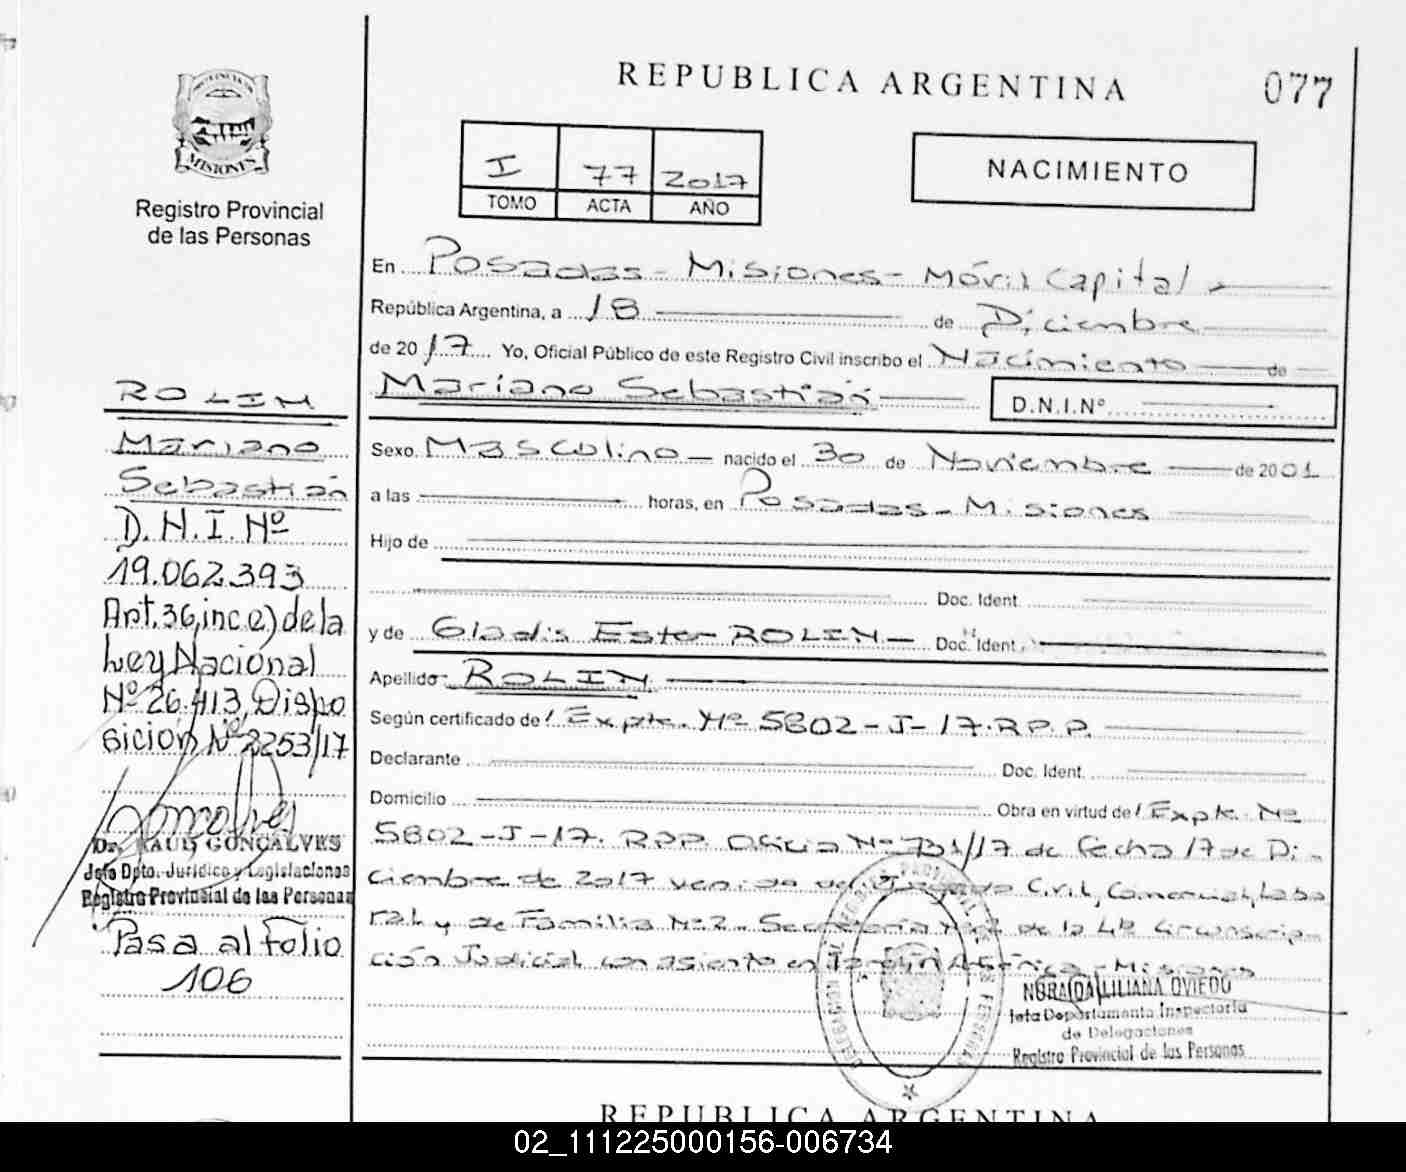 REPUBLICA ARGENTINA
077
PROVINCIA DE
MISIONES
Registro Provincial
de las Personas
I 77 2017
TOMO ACTA AÑO
NACIMIENTO
En Posadas - Misiones - Móvil Capital
República Argentina, a 18 de Diciembre
de 2017 Yo, Oficial Público de este Registro Civil inscribo el Nacimiento de
Mariano Sebastián D.N.I.Nº
Sexo Masculino nacido el 30 de Noviembre de 2001
a las horas, en Posadas - Misiones
Hijo de
Doc. Ident.
y de Gladis Ester ROLIN - Doc. Ident.
Apellido ROLIN
Según certificado de Expte. Nº 5802-J-17. R.P.P.
Declarante Doc. Ident.
Domicilio Obra en virtud de Expte. Nº
5802-J-17. R.P.P. Oficio Nº 731/17 de fecha 17 de Di-
ciembre de 2017 venido del Juzgado Civil, Comercial, Labo
ral y de Familia Nº 2 - Secretaría Nº 2 de la 4ta Circunscrip-
ción Judicial con asiento en Jardín América - Misiones
NORA IDA LILIANA OVIEDO
Jefa Departamento Inspectoría
de Delegaciones
Registro Provincial de las Personas
ROLIN
Mariano
Sebastián
D.N.I. Nº
19.062.393
Art. 36, inc e) de la
Ley Nacional
Nº 26.413, Dispo
sición Nº 2253/17
Dr. RAUL GONCALVES
Jefe Dpto. Jurídico y Legislaciones
Registro Provincial de las Personas
Pasa al Folio
106
REPUBLICA ARGENTINA
02_111225000156-006734